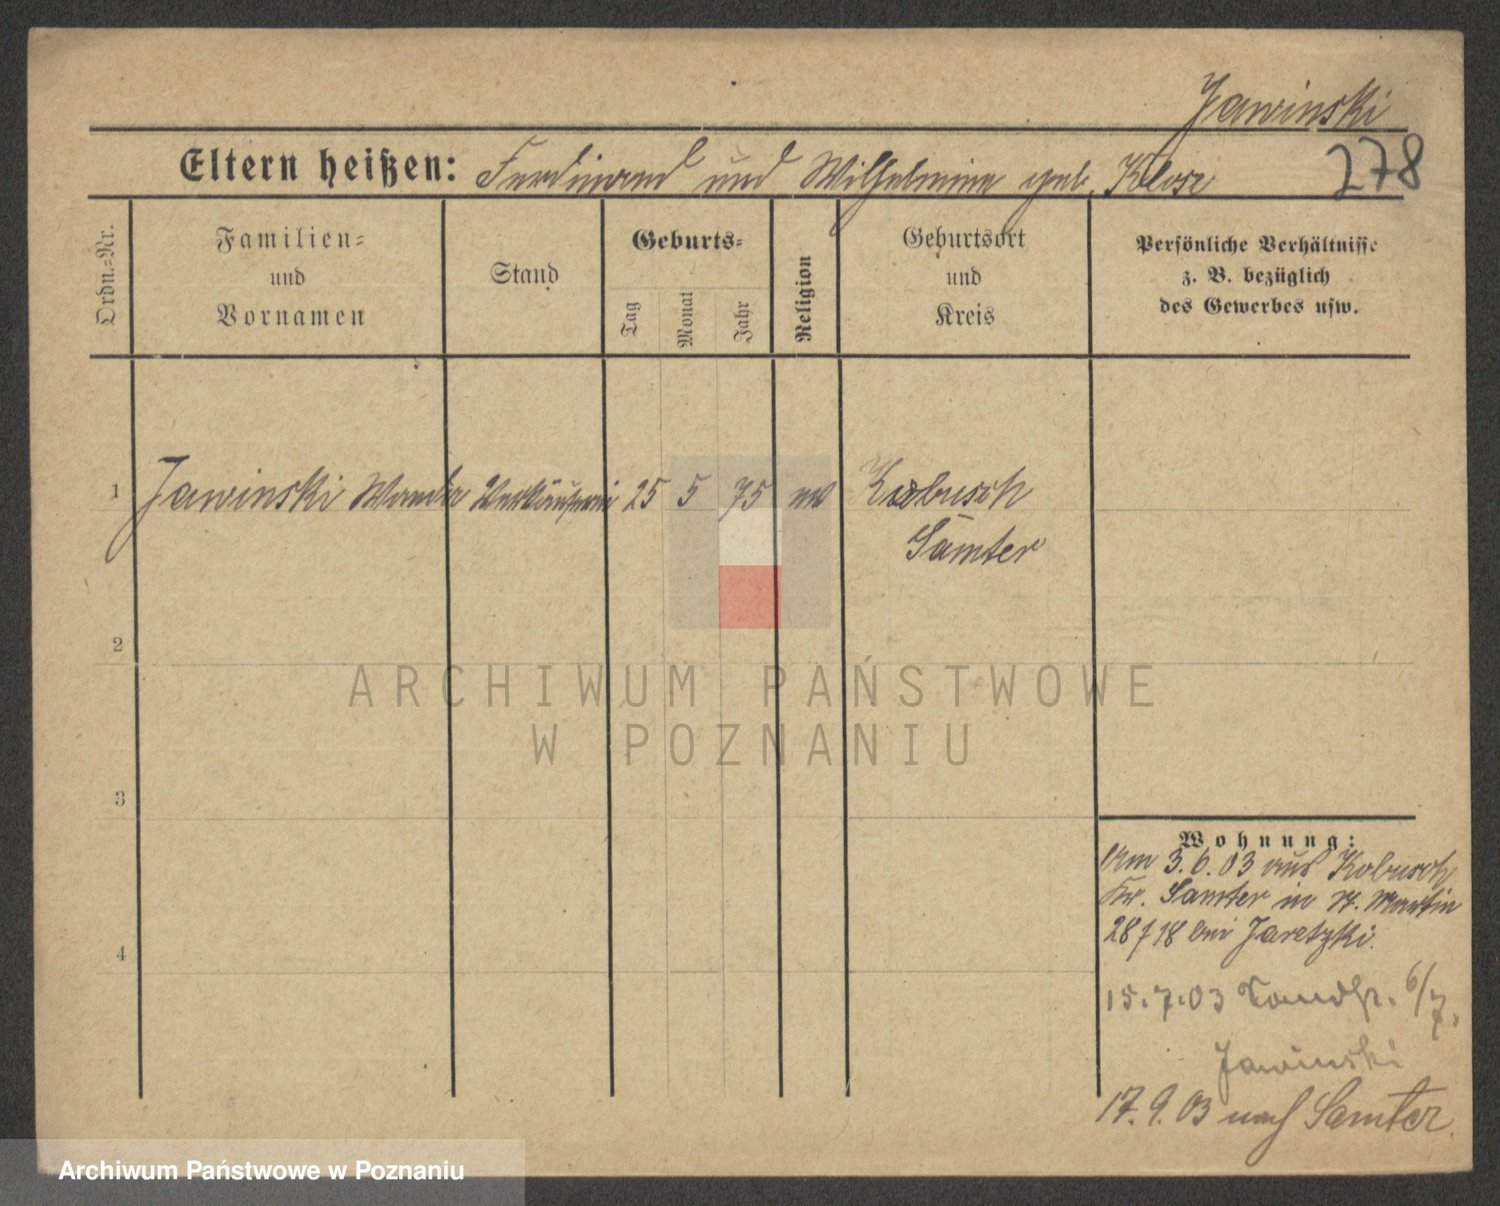 Jawinski
278
Eltern heißen: Ferdinand und Wilhelmine geb. Klose
Ordn.-Nr.
Familien-
und
Vornamen
Stand
Geburts-
Tag
Monat
Jahr
Religion
Geburtsort
und
Kreis
Persönliche Verhältnisse
z. B. bezüglich
des Gewerbes usw.
1 Jawinski Wanda Verkäuferin 25 5 75 ev Kobusch
Samter
2
3
4
ARCHIWUM PAŃSTWOWE
W POZNANIU
Wohnung:
Am 3.6.03 aus Kobusch
Kr. Samter in St. Martin
28/18 bei Jaretzki.
15.7.03 6/7.
Jawinski
17.9.03 nach Samter.
Archiwum Państwowe w Poznaniu